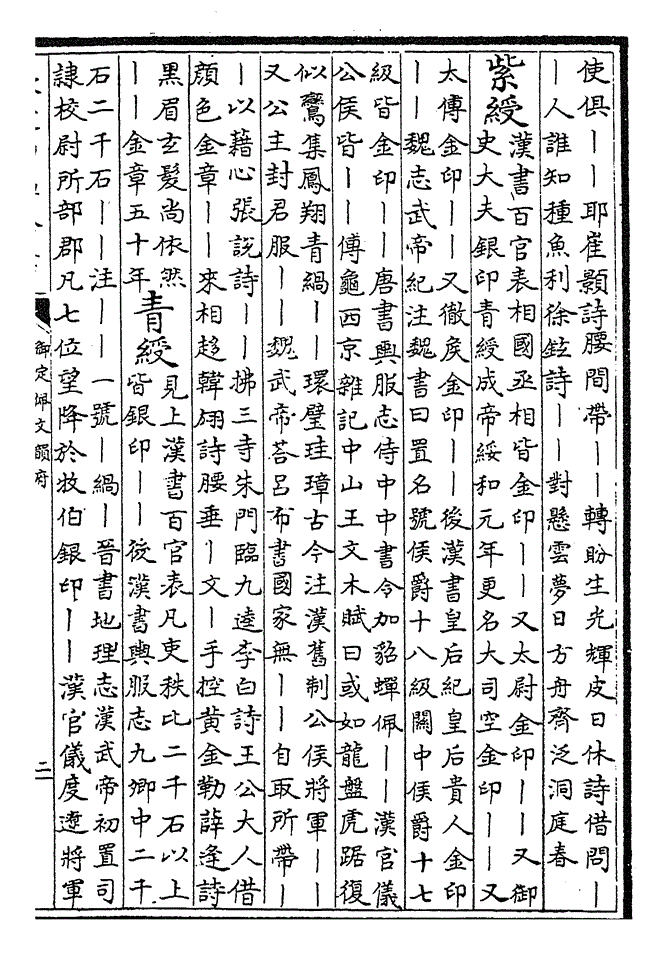 使俱——耶崔顥詩腰間帶——轉盼生光輝皮日休詩借問—
—人誰知種魚利徐鉉詩——對懸雲夢日方舟齊泛洞庭春
紫綬
漢書百官表相國丞相皆金印——又太尉金印——又御
史大夫銀印青綬成帝綏和元年更名大司空金印——又
太傅金印——又徹侯金印——後漢書皇后紀皇后貴人金印
——魏志武帝紀注魏書曰置名號侯爵十八級關中侯爵十七
級皆金印——唐書輿服志侍中中書令加貂蟬佩——漢官儀
公侯皆——傅龜西京雜記中山王文木賦曰或如龍盤虎踞復
似鸞集鳳翔青緺——環璧珪璋古今注漢舊制公侯將軍——
又公主封君服——魏武帝荅呂布書國家無——自取所帶—
—以藉心張説詩——拂三寺朱門臨九逵李白詩王公大人借
顔色金章——來相趍韓翃詩腰垂—文—手控黄金勒薛逢詩
黑眉玄髮尚依然
——金章五十年
青綬
見上漢書百官表凡吏秩比二千石以上
皆銀印——後漢書輿服志九卿中二千
石二千石——注——一號—緺—晉書地理志漢武帝初置司
隷校尉所部郡凡七位望降於牧伯銀印——漢官儀度遼將軍
御定佩文韻府
二